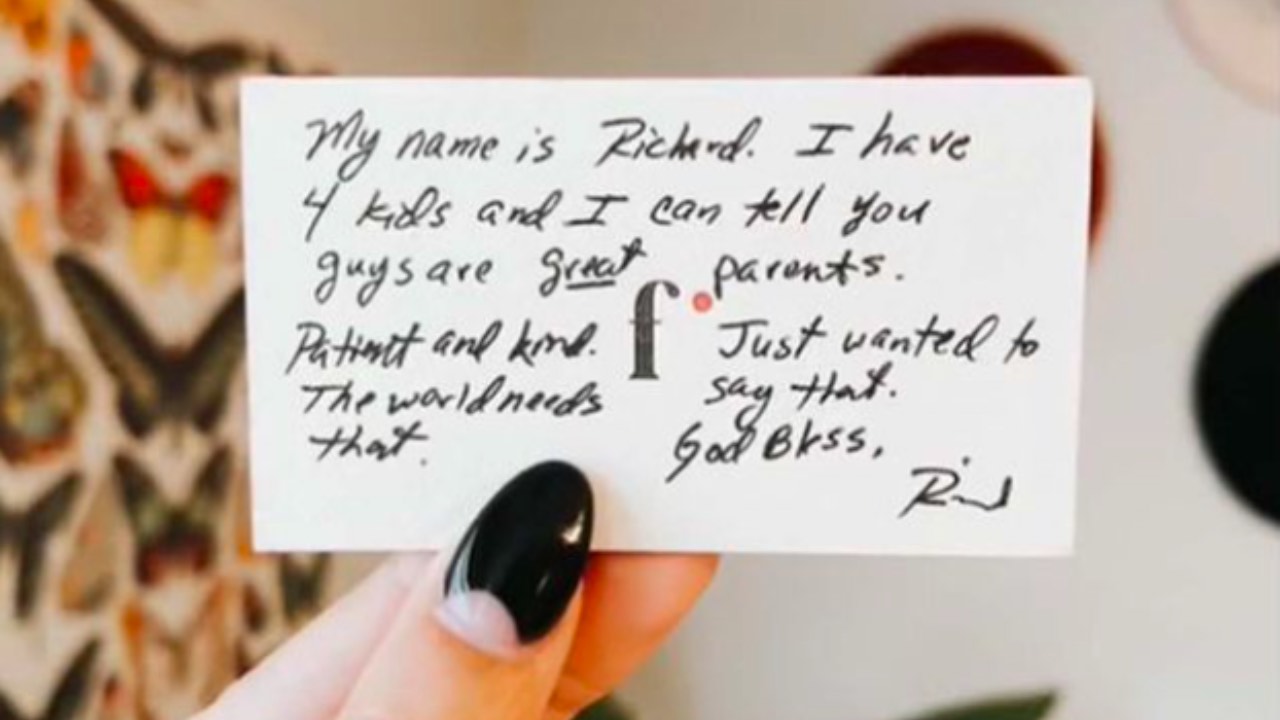 My name is Richard. I have
4 kids and I can tell you
guys are great parents.
f.
Patient and kind.
The world needs
that.
Just wanted to
say that.
God Bless,
Richard